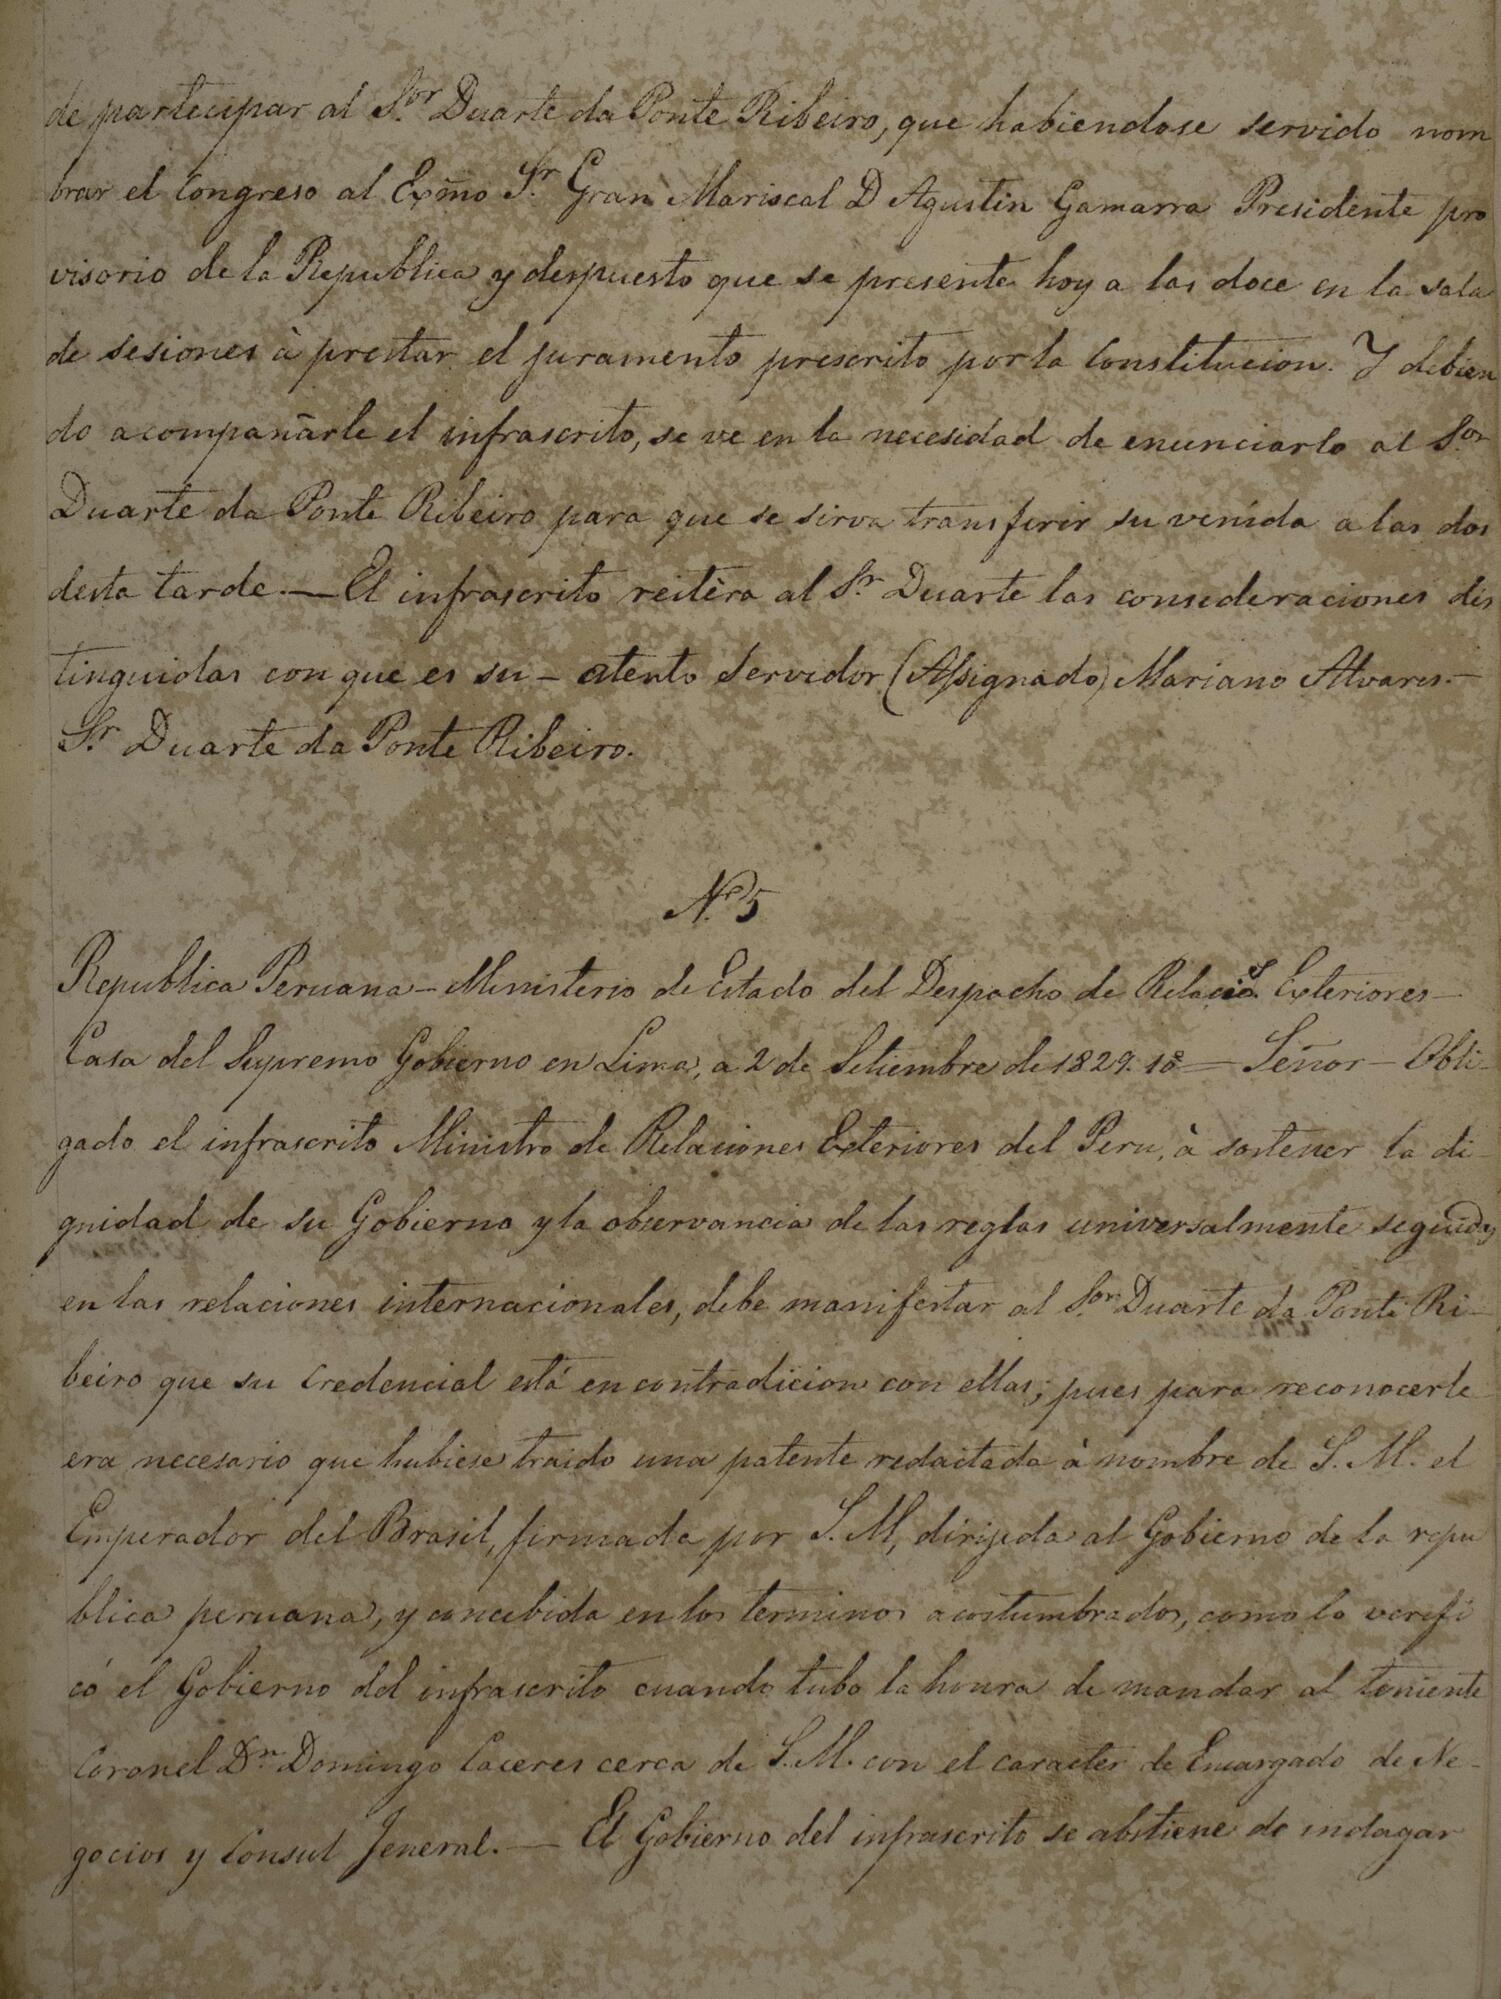 de partecipar al S.or Duarte da Ponte Ribeiro, que habiendose servido nom
brar el Congreso al Exmo S.r Gran Mariscal D Agustin Gamarra Presidente pro
visorio de la Republica y despuesto que se presente hoy a las doce en la sala
de sesiones à prestar el juramento prescrito por la Constitucion. Y debien
do acompañarle el infrascrito, se ve en la necesidad de enunciarlo al S.or
Duarte da Ponte Ribeiro para que se sirva transferir su venida a las dos
desta tarde.— El infrascrito reitèra al S.r Duarte las consideraciones dis
tinguidas con que es su – atento servidor (Assignado) Mariano Alvares.–
S.r Duarte da Ponte Ribeiro.
N.o 5
Republica Peruana – Ministerio de Estado del Despacho de Relacio.s Exteriores –
Casa del Supremo Gobierno en Lima, a 2 de Setiembre de 1829. 10 — Señor – Obli-
gado el infrascrito Ministro de Relaciones Exteriores del Peru, à sostener la di-
gnidad de su Gobierno y la observancia de las reglas universalmente seguidas
en las relaciones internacionales, debe manifestar al S.or Duarte da Ponte Ri-
beiro que su Credencial está en contradicion con ellas; pues para reconocerle
era necesario que hubiese traido una patente redactada à nombre de S. M. el
Emperador del Brasil, firmada por S. M, dirijida al Gobierno de la repu
blica peruana, y concebida en los terminos acostumbrados, como lo verifi
có el Gobierno del infrascrito cuando tubo la honra de mandar al teniente
Coronel D.n Domingo Caceres cerca de S. M. con el caracter de Encargado de Ne-
gocios y Consul Jeneral. — El Gobierno del infrascrito se abstiene de indagar